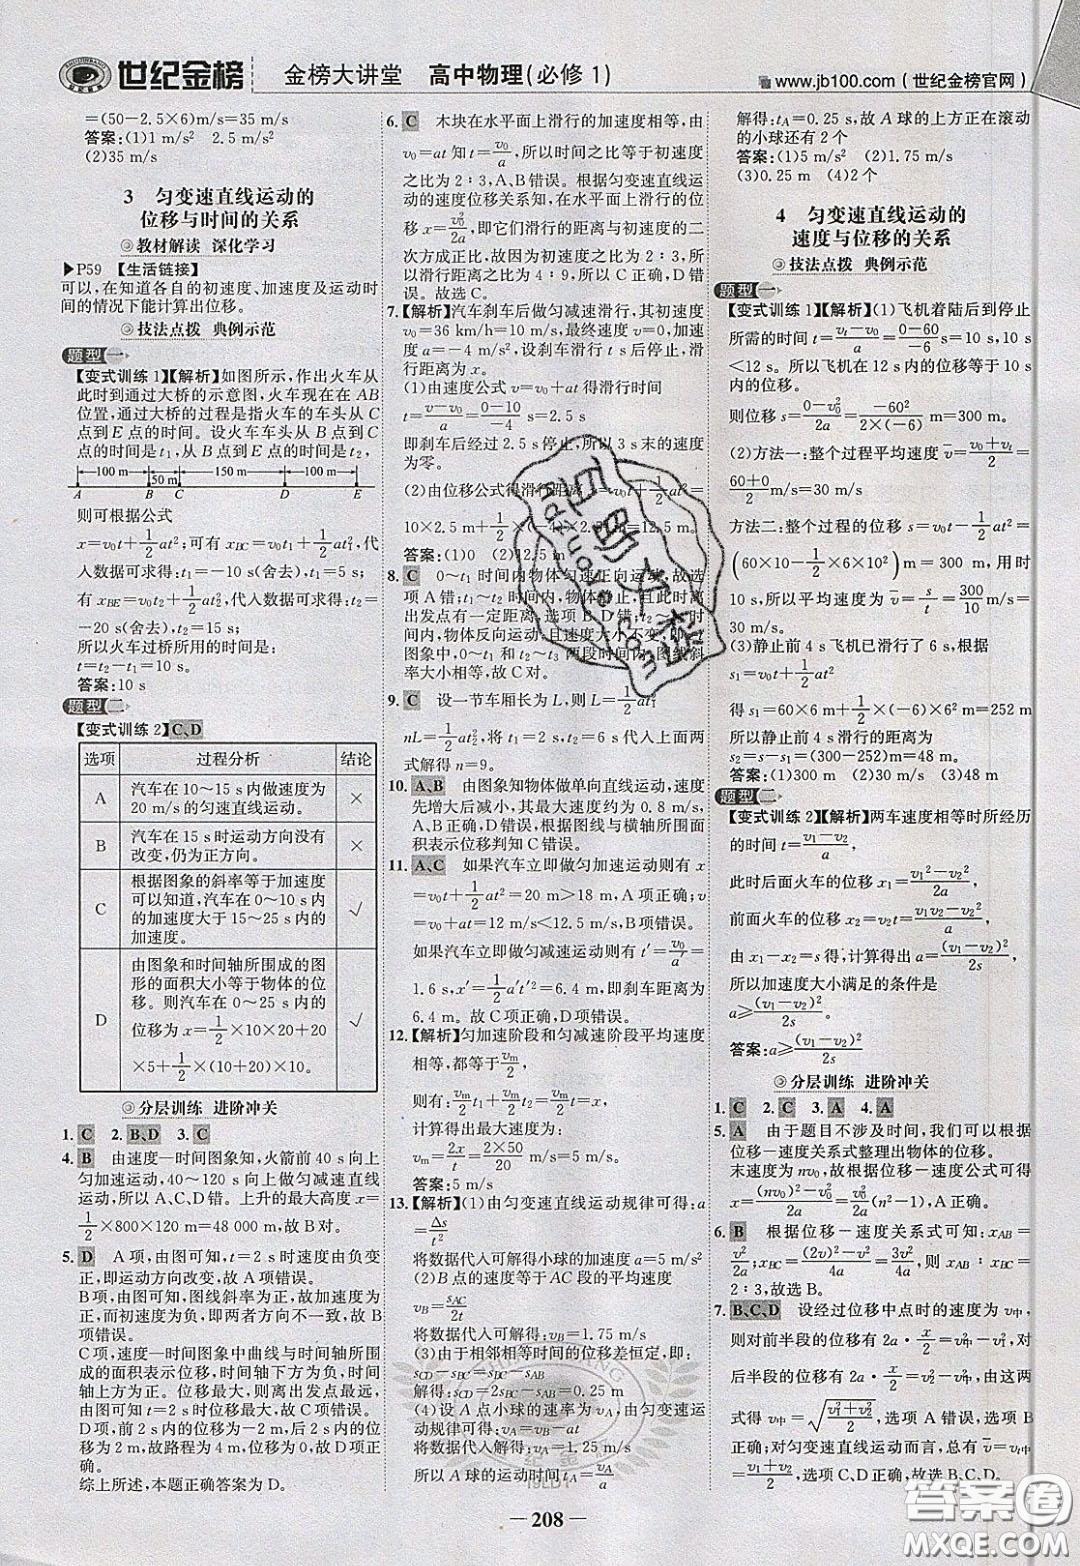 世纪金榜
金榜大讲堂 高中物理(必修1)
www.jb100.com(世纪金榜官网)
=(50-2.5×6)m/s=35 m/s
答案:(1)1 m/s² 2.5 m/s²
(2)35 m/s
3 匀变速直线运动的
位移与时间的关系
教材解读 深化学习
▶P59 【生活链接】
可以,在知道各自的初速度、加速度及运动时
间的情况下能计算出位移。
技法点拨 典例示范
题型一
【变式训练1】【解析】如图所示,作出火车从
此时到通过大桥的示意图,火车现在在AB
位置,通过大桥的过程是指火车的车头从C
点到E点的时间。设火车车头从B点到C
点的时间是t₁,从B点到E点的时间是t₂,
100 m 50 m 150 m 100 m
A B C D E
则可根据公式
x=v₀t+1/2at²;可有xBC=v₀t₁+1/2at₁²,代
入数据可求得:t₁=-10 s(舍去),t₁=5 s;
有xBE=v₀t₂+1/2at₂²,代入数据可求得:t₂=
-20 s(舍去),t₂=15 s;
所以火车过桥所用的时间是:
t=t₂-t₁=10 s。
答案:10 s
题型二
【变式训练2】C、D
选项 过程分析 结论
A 汽车在10~15 s内做速度为
20 m/s的匀速直线运动。 ×
B 汽车在15 s时运动方向没有
改变,仍为正方向。 ×
C 根据图象的斜率等于加速度
可以知道,汽车在0~10 s内
的加速度大于15~25 s内的
加速度。 √
D 由图象和时间轴所围成的图
形的面积大小等于物体的位
移。则汽车在0~25 s内的
位移为x=1/2×10×20+20
×5+1/2×(10+20)×10 √
分层训练 进阶冲关
1. C 2. B、D 3. C
4. B 由速度—时间图象知,火箭前40 s向上
匀加速运动,40~120 s向上做匀减速直线
运动,所以A、C、D错。上升的最大高度为
1/2×800×120 m=48 000 m,故B对。
5. D A项,由图可知,t=2 s时速度由负变
正,即运动方向改变,故A项错误。
B项,由图可知,图线斜率为正,故加速度为
正,而速度为负,即两者方向不同,物体做匀
减速直线运动,故B项错误。
C项,速度—时间图象中曲线与时间轴所围
成的面积表示位移,时间轴下方为负,时间
轴上方为正。由图可知t=2 s时位移最大,
故C项错误。
D项,由图可知,前2 s内的位移为-2 m,后
2 s内的位移为2 m,故总位移为0 m。所以
位移为2 m,故路程为4 m,位移为0,故D项
正确。
综上所述,本题正确答案为D。
6. C 木块在水平面上滑行的加速度相等,由
v₀=at知t=v₀/a,所以时间之比等于初速度
之比为2∶3,A、B错误。根据匀变速直线运动
的速度位移关系知,在水平面上滑行的位
移x=v₀²/2a,即它们滑行的距离与初速度的二
次方成正比。故因为初速度之比为2∶3,则
滑行距离之比为4∶9,所以C正确、D错
误。故选C。
7.【解析】汽车刹车后做匀减速滑行,其初速度
v₀=36 km/h=10 m/s,最终速度v=0,加速
度a=-4 m/s²,设刹车滑行t s后停止,滑行
距离为x。
(1)由速度公式v=v₀+at得滑行时间
t=(v-v₀)/a=(0-10)/-4 s=2.5 s
即刹车后经过2.5 s停止,所以3 s末的速度
为零。
(2)由位移公式得滑行距离x=v₀t+1/2at²=
10×2.5 m+1/2×(-4)×2.5² m=12.5 m。
答案:(1)0 (2)12.5 m
8. C 0~t₁时间内物体匀速正向运动,故选
项A错;t₁~t₂时间内,物体静止,且此时离
出发点有一定距离,选项B、D错;t₂~t₃时
间内,物体反向运动,且速度大小不变,即x-t
图象中,0~t₁和t₂~t₃两段时间内,图线斜
率大小相等,故C对。
9. C 设一节车厢长为L,则L=1/2at₁²
nL=1/2at₂²,将t₁=2 s,t₂=6 s代入上面两
式解得n=9。
10. A、B 由图象知物体做单向直线运动,速度
先增大后减小,其最大速度约为0.8 m/s,
A、B正确,根据图线与横轴所围面
积表示位移判知C错误。
11. A、C 如果汽车立即做匀加速运动则有x
=v₀t+1/2at²=20 m>18 m,A项正确;v=
v₀+at=12 m/s<12.5 m/s,B项错误。
如果汽车立即做匀减速运动则有t′=v₀/a′=
1.6 s,x=1/2a′t′²=6.4 m,即刹车距离为
6.4 m。故C项正确、D项错误。
12.【解析】匀加速阶段和匀减速阶段平均速度
相等,都等于vm/2
则有:vm/2t₁+vm/2t₂=vm/2t=x,
计算得出最大速度为:
vm=2x/t=(2×50)/20 m/s=5 m/s。
答案:5 m/s
13.【解析】(1)由匀变速直线运动规律可得:a
=Δs/t²
将数据代入可解得小球的加速度a=5 m/s²
(2)B点的速度等于AC段的平均速度
vB=sAC/2t
将数据代入可解得vB=1.75 m/s
(3)由于相邻相等时间的位移差恒定,即:
sCD-sBC=sBC-sAB
解得:sCD=2sBC-sAB=0.25 m
(4)设A点小球的速率为vA,由匀变速
运动规律可得:vA=vB-at
将数据代入可解得:vA=1.25 m/s
所以A球的运动时间tA=vA/a
解得:tA=0.25 s,故A球的上方正在滚动
的小球还有2个
答案:(1)5 m/s² (2)1.75 m/s
(3)0.25 m (4)2个
4 匀变速直线运动的
速度与位移的关系
技法点拨 典例示范
题型一
【变式训练1】【解析】(1)飞机着陆后到停止
所需的时间t=(vt-v₀)/a=(0-60)/-6 s=10 s,10 s
<12 s。所以飞机在12 s内的位移等于10 s
内的位移。
则位移s=(0-v₀²)/2a=-60²/(2×(-6)) m=300 m。
(2)方法一:整个过程的平均速度v̄=(v₀+vt)/2=
(60+0)/2 m/s=30 m/s
方法二:整个过程的位移s=v₀t-1/2at²=
(60×10-1/2×6×10²) m=300 m,用时
10 s,所以平均速度为v̄=s/t=300/10 m/s
=30 m/s。
(3)静止前4 s飞机已滑行了6 s,
s₁=v₀t₁+1/2at₁²
得s₁=60×6 m+1/2×(-6)×6² m=252 m
所以静止前4 s滑行的位移为
s₂=s-s₁=(300-252) m=48 m。
答案:(1)300 m (2)30 m/s (3)48 m
题型二
【变式训练2】【解析】两车速度相等时所经历
的时间t=(v₁-v₂)/a,
此时后面火车的位移x₁=(v₁²-v₂²)/2a
前面火车的位移x₂=v₂t=(v₁v₂-v₂²)/a,
由x₁-x₂=s得,计算得出a=(v₁-v₂)²/2s,
所以加速度大小满足的条件是
a≥(v₁-v₂)²/2s。
答案:a≥(v₁-v₂)²/2s
分层训练 进阶冲关
1. C 2. C 3. A 4. A
5. A 由于题目不涉及时间,我们可以根据
位移—速度关系式整理出物体的位移。
末速度为nv₀,故根据位移—速度公式可得
x=((nv₀)²-v₀²)/2a=(n²-1)v₀²/2a,A正确。
6. B 根据位移-速度关系式可知:xAB=
v²/2a;xBC=((2v)²-v²)/2a=3v²/2a,则xAB∶xBC=1∶3,故选B。
7. B、C、D 设经过位移中点时的速度为v中,
则对前半段的位移有2a·x/2=v中²-v₁²,对
后半段的位移有2a·x/2=v₂²-v中²,由这两
式得v中=√((v₁²+v₂²)/2),选项A错误,选项B正
确;对匀变速直线运动而言,总有v̄=
(v₁+v₂)/2,选项C、D正确。
—208—
答案圈
MXQE.COM